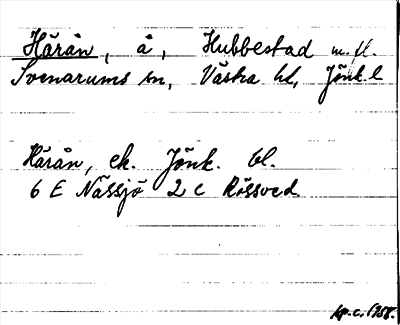 Härån, å, Hubbestad m.fl.
Svenarums sn, Västra hd, Jönk l
Härån, ek. Jönk. bl.
6 E Nässjö 2 c Rössved
kp.c. 1958.